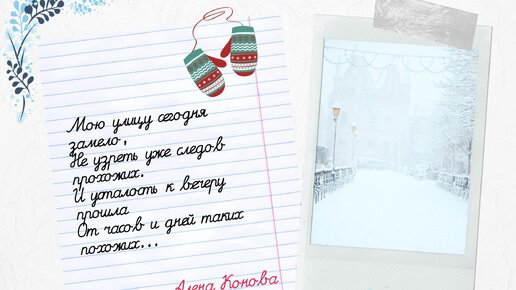 Мою улицу сегодня
замело,
Не узреть уже следов
прохожих.
И усталость к вечеру
прошла
От часов и дней таких
похожих...
Алена Конова